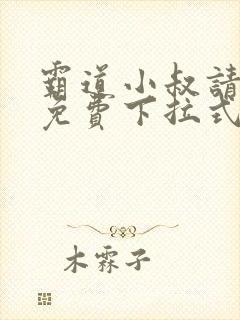 霸道小叔請
免費下拉式
木霖子